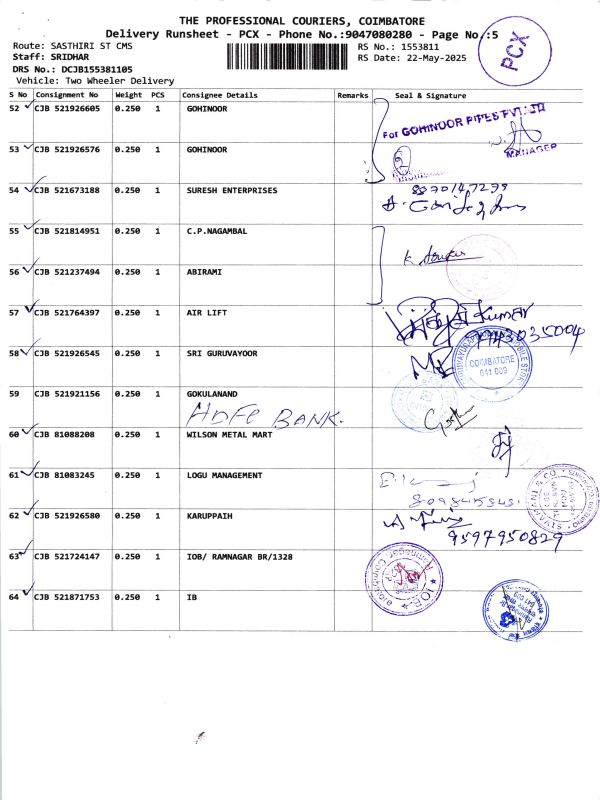 THE PROFESSIONAL COURIERS, COIMBATORE
Delivery Runsheet - PCX - Phone No.:9047080280 - Page No.:5
PCX
Route: SASTHIRI ST CMS
RS No.: 1553811
Staff: SRIDHAR
RS Date: 22-May-2025
DRS No.: DCJB155381105
Vehicle: Two Wheeler Delivery
S No Consignment No Weight PCS Consignee Details Remarks Seal & Signature
52 CJB 521926605 0.250 1 GOHINOOR
For GOHINOOR PIPES PVT. LTD
MANAGER
53 CJB 521926576 0.250 1 GOHINOOR
54 CJB 521673188 0.250 1 SURESH ENTERPRISES
55 CJB 521814951 0.250 1 C.P.NAGAMBAL
56 CJB 521237494 0.250 1 ABIRAMI
57 CJB 521764397 0.250 1 AIR LIFT
58 CJB 521926545 0.250 1 SRI GURUVAYOOR
COIMBATORE
641 009
59 CJB 521921156 0.250 1 GOKULANAND
HDFC BANK.
60 CJB 81088208 0.250 1 WILSON METAL MART
61 CJB 81083245 0.250 1 LOGU MANAGEMENT
62 CJB 521926580 0.250 1 KARUPPAIH
9597950829
63 CJB 521724147 0.250 1 IOB/ RAMNAGAR BR/1328
64 CJB 521871753 0.250 1 IB